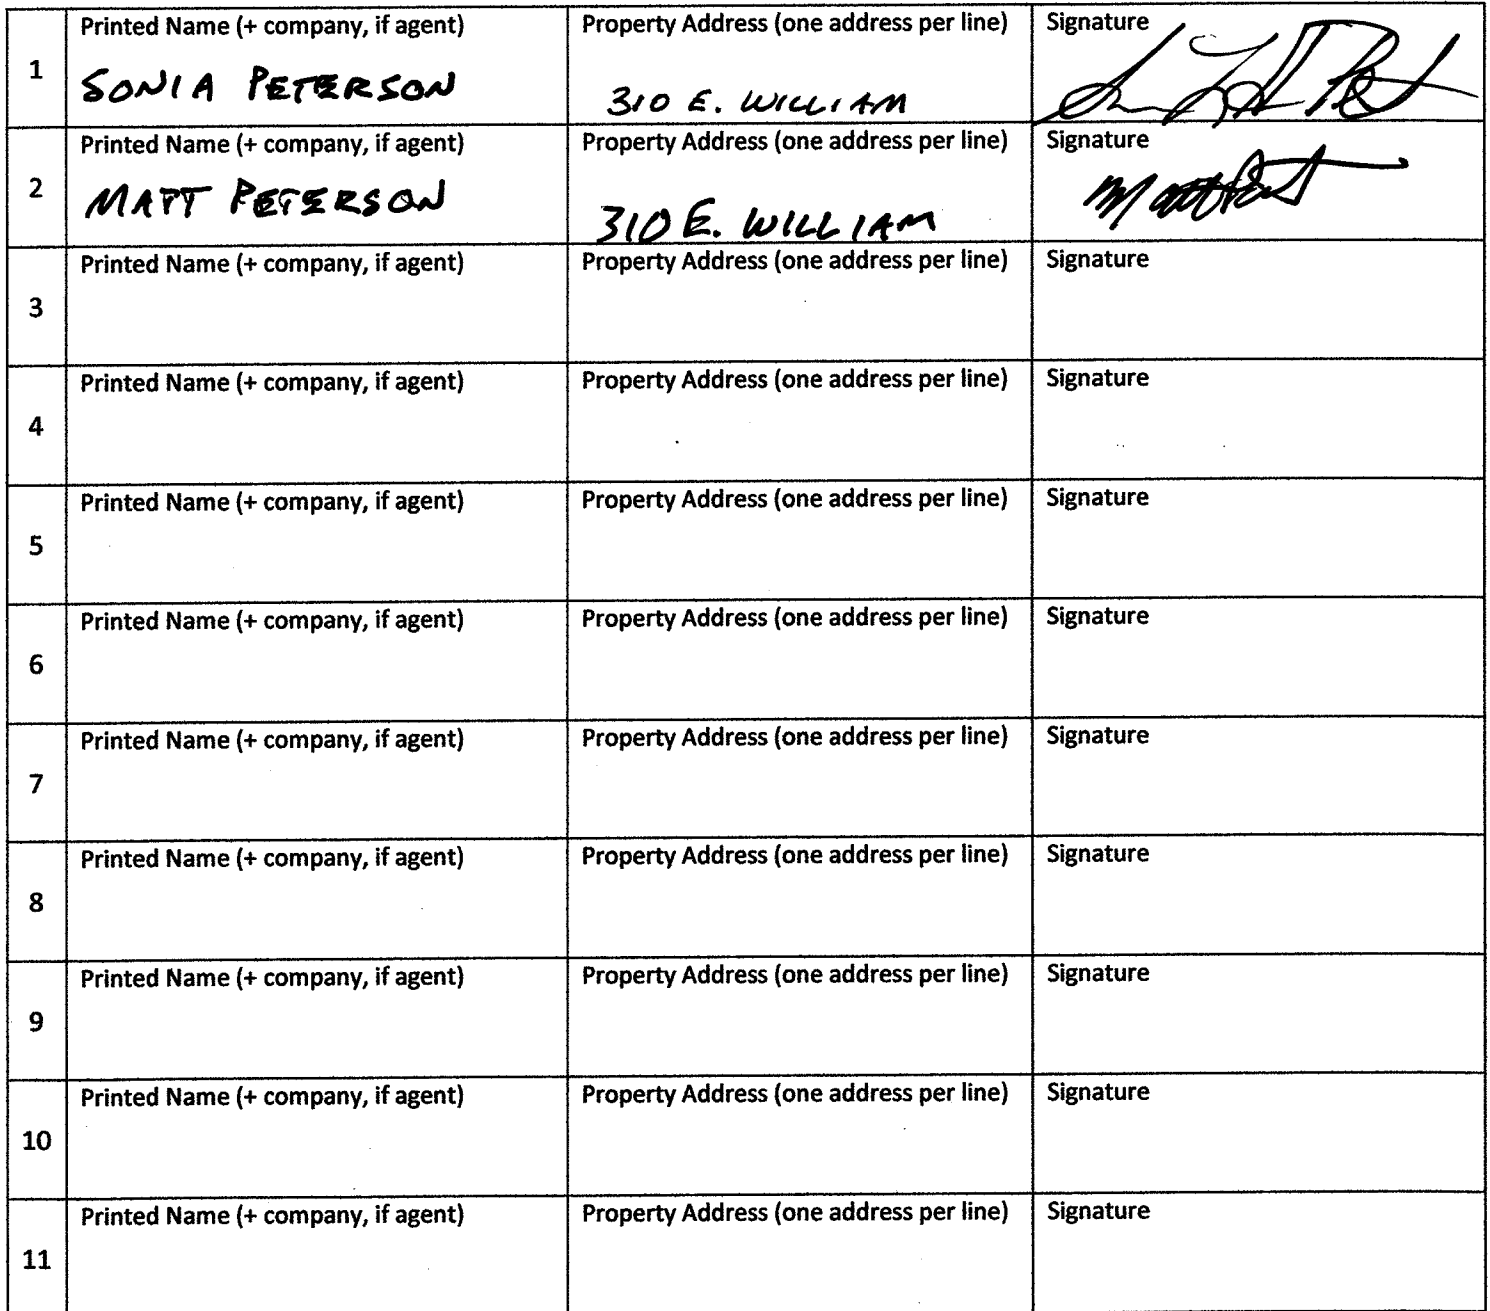 Printed Name (+ company, if agent) Property Address (one address per line) Signature
1
SONIA PETERSON 310 E. WILLIAM
Printed Name (+ company, if agent) Property Address (one address per line) Signature
2
MATT PETERSON 310 E. WILLIAM
Printed Name (+ company, if agent) Property Address (one address per line) Signature
3
Printed Name (+ company, if agent) Property Address (one address per line) Signature
4
Printed Name (+ company, if agent) Property Address (one address per line) Signature
5
Printed Name (+ company, if agent) Property Address (one address per line) Signature
6
Printed Name (+ company, if agent) Property Address (one address per line) Signature
7
Printed Name (+ company, if agent) Property Address (one address per line) Signature
8
Printed Name (+ company, if agent) Property Address (one address per line) Signature
9
Printed Name (+ company, if agent) Property Address (one address per line) Signature
10
Printed Name (+ company, if agent) Property Address (one address per line) Signature
11